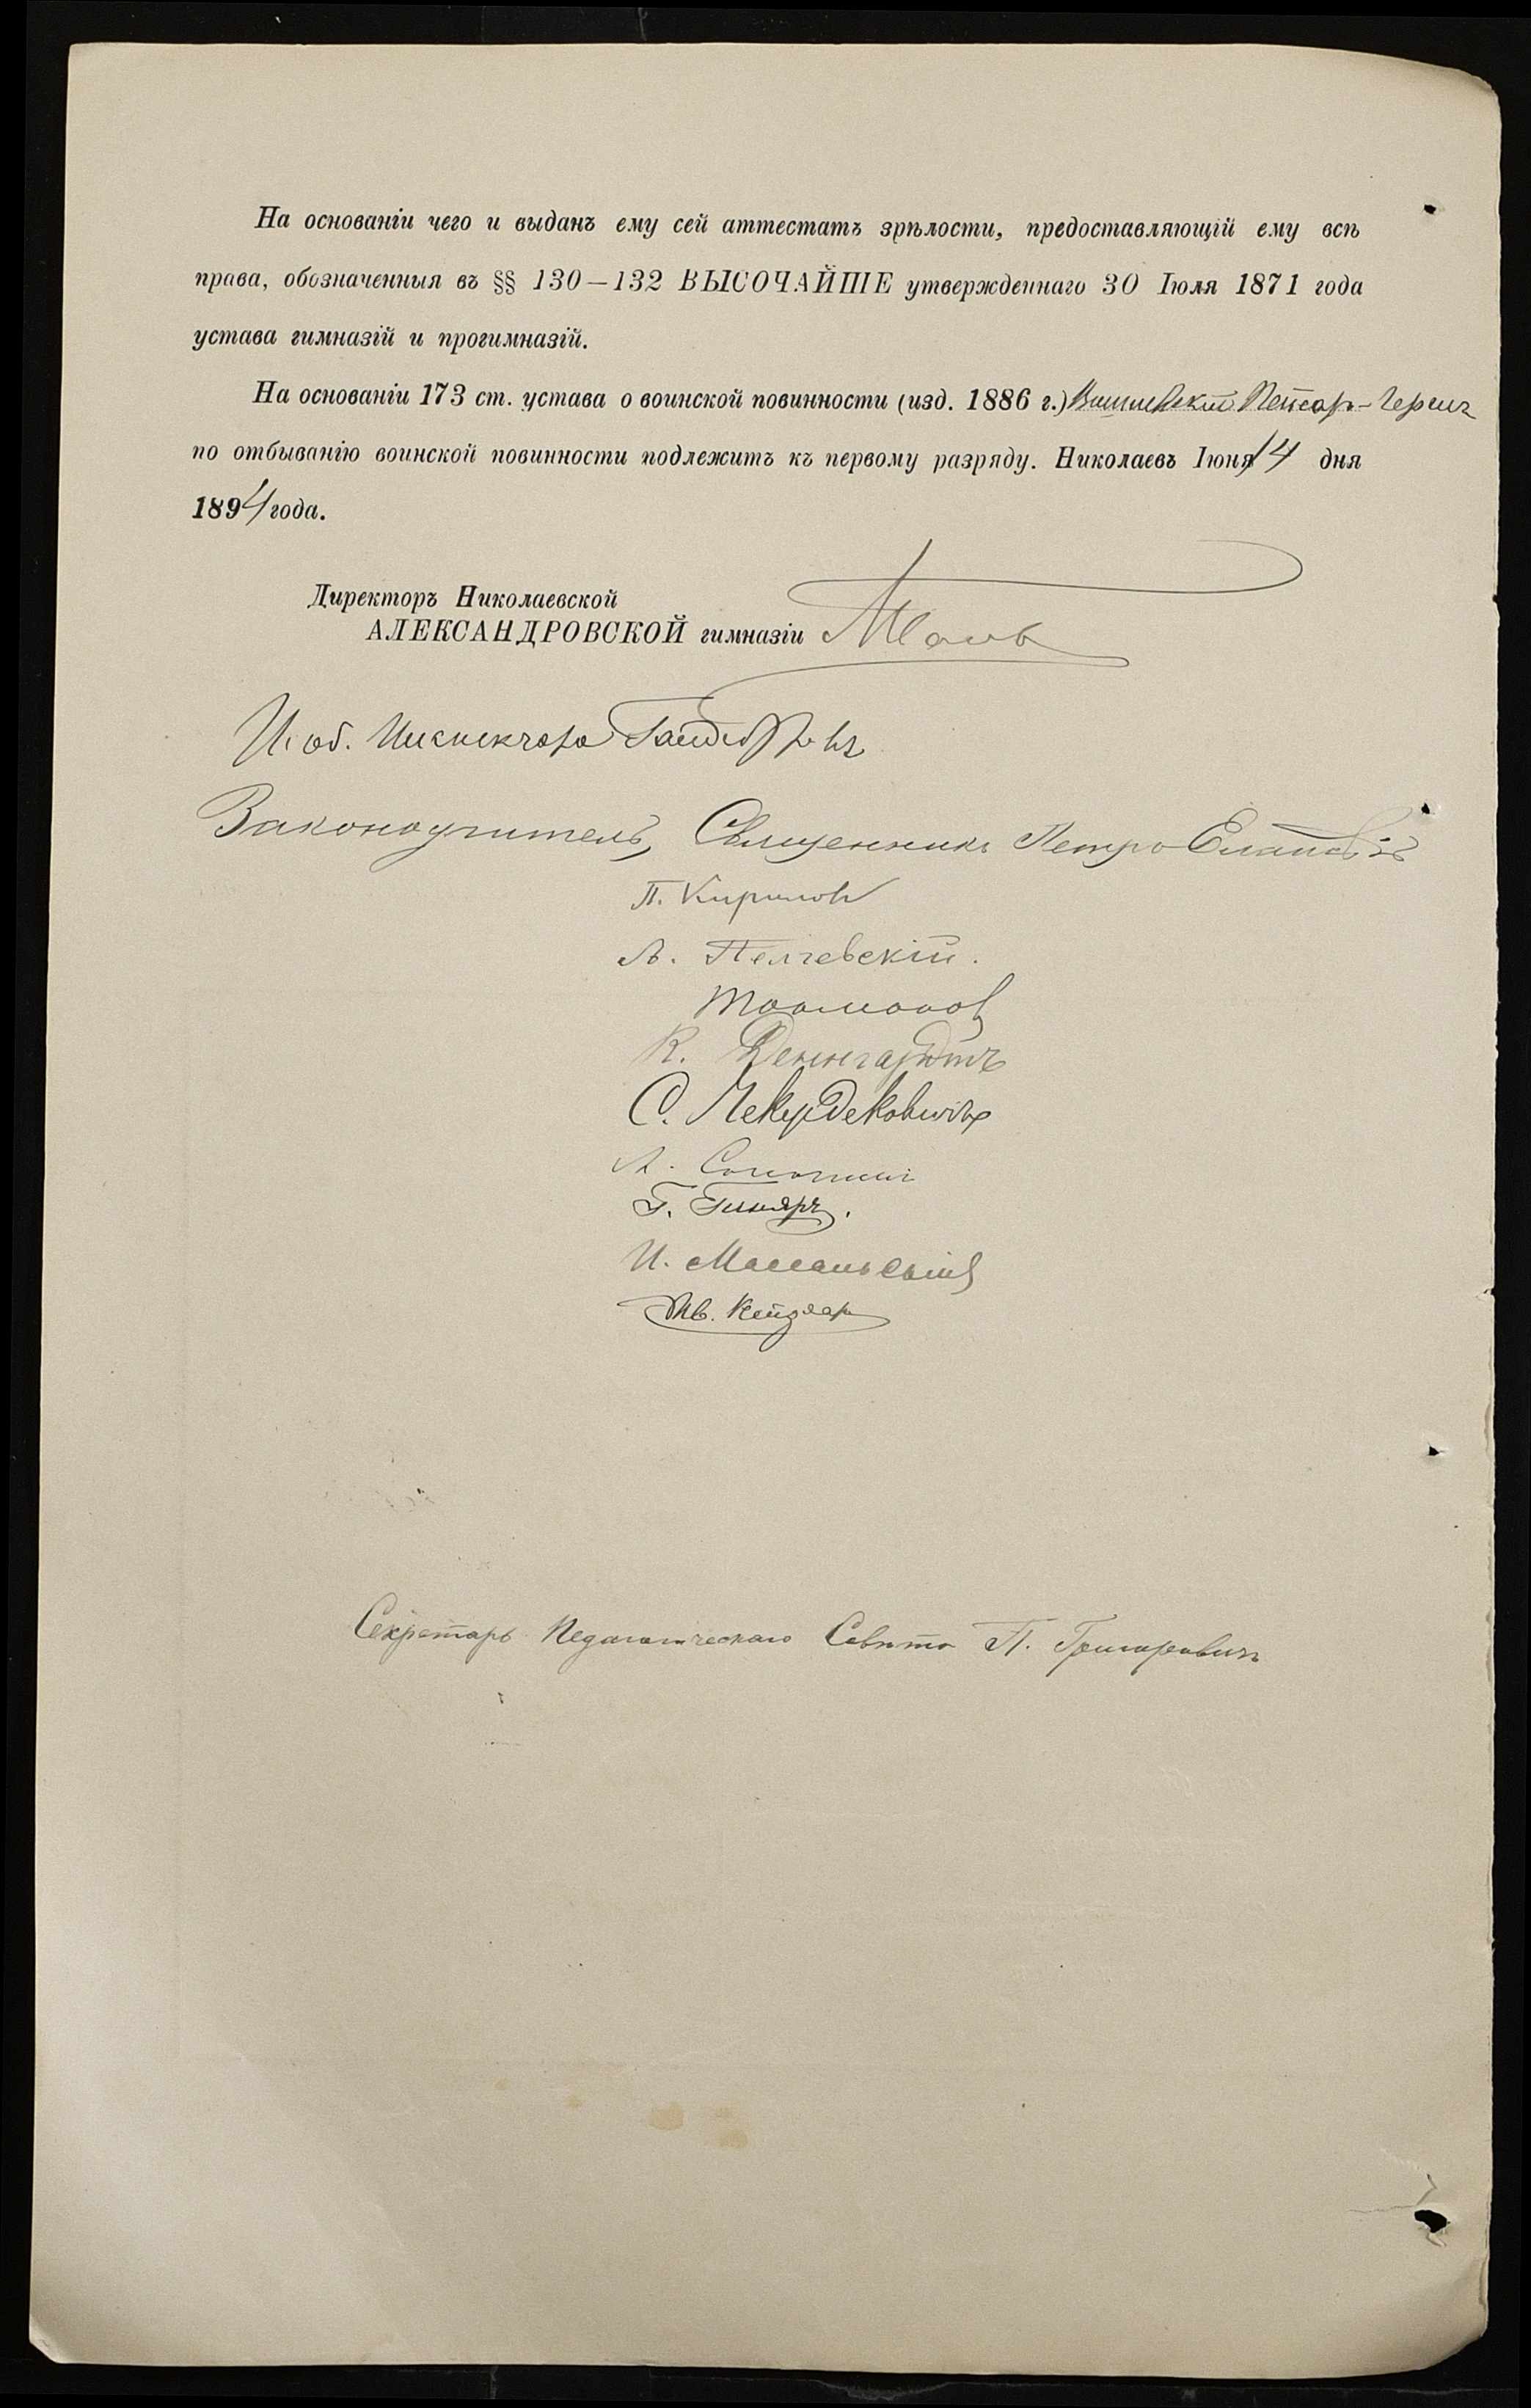 На основаніи чего и выданъ ему сей аттестатъ зрѣлости, предоставляющій ему всѣ
права, обозначенныя въ §§ 130—132 ВЫСОЧАЙШЕ утвержденнаго 30 Іюля 1871 года
устава гимназій и прогимназій.
На основаніи 173 ст. устава о воинской повинности (изд. 1886 г.)
по отбыванію воинской повинности подлежитъ къ первому разряду. Николаевъ Іюня 14 дня
1894 года.
Директоръ Николаевской
АЛЕКСАНДРОВСКОЙ гимназіи
И. об. Инспектора
Законоучитель, Священникъ Петръ
П. Кириловъ
А. Пелчевскій.
К. Деннгардтъ
С. Чекурдековичъ
Г.
И.
Ив. Кейзлар
Секретарь Педагогическаго Совѣта П. Григоровичъ